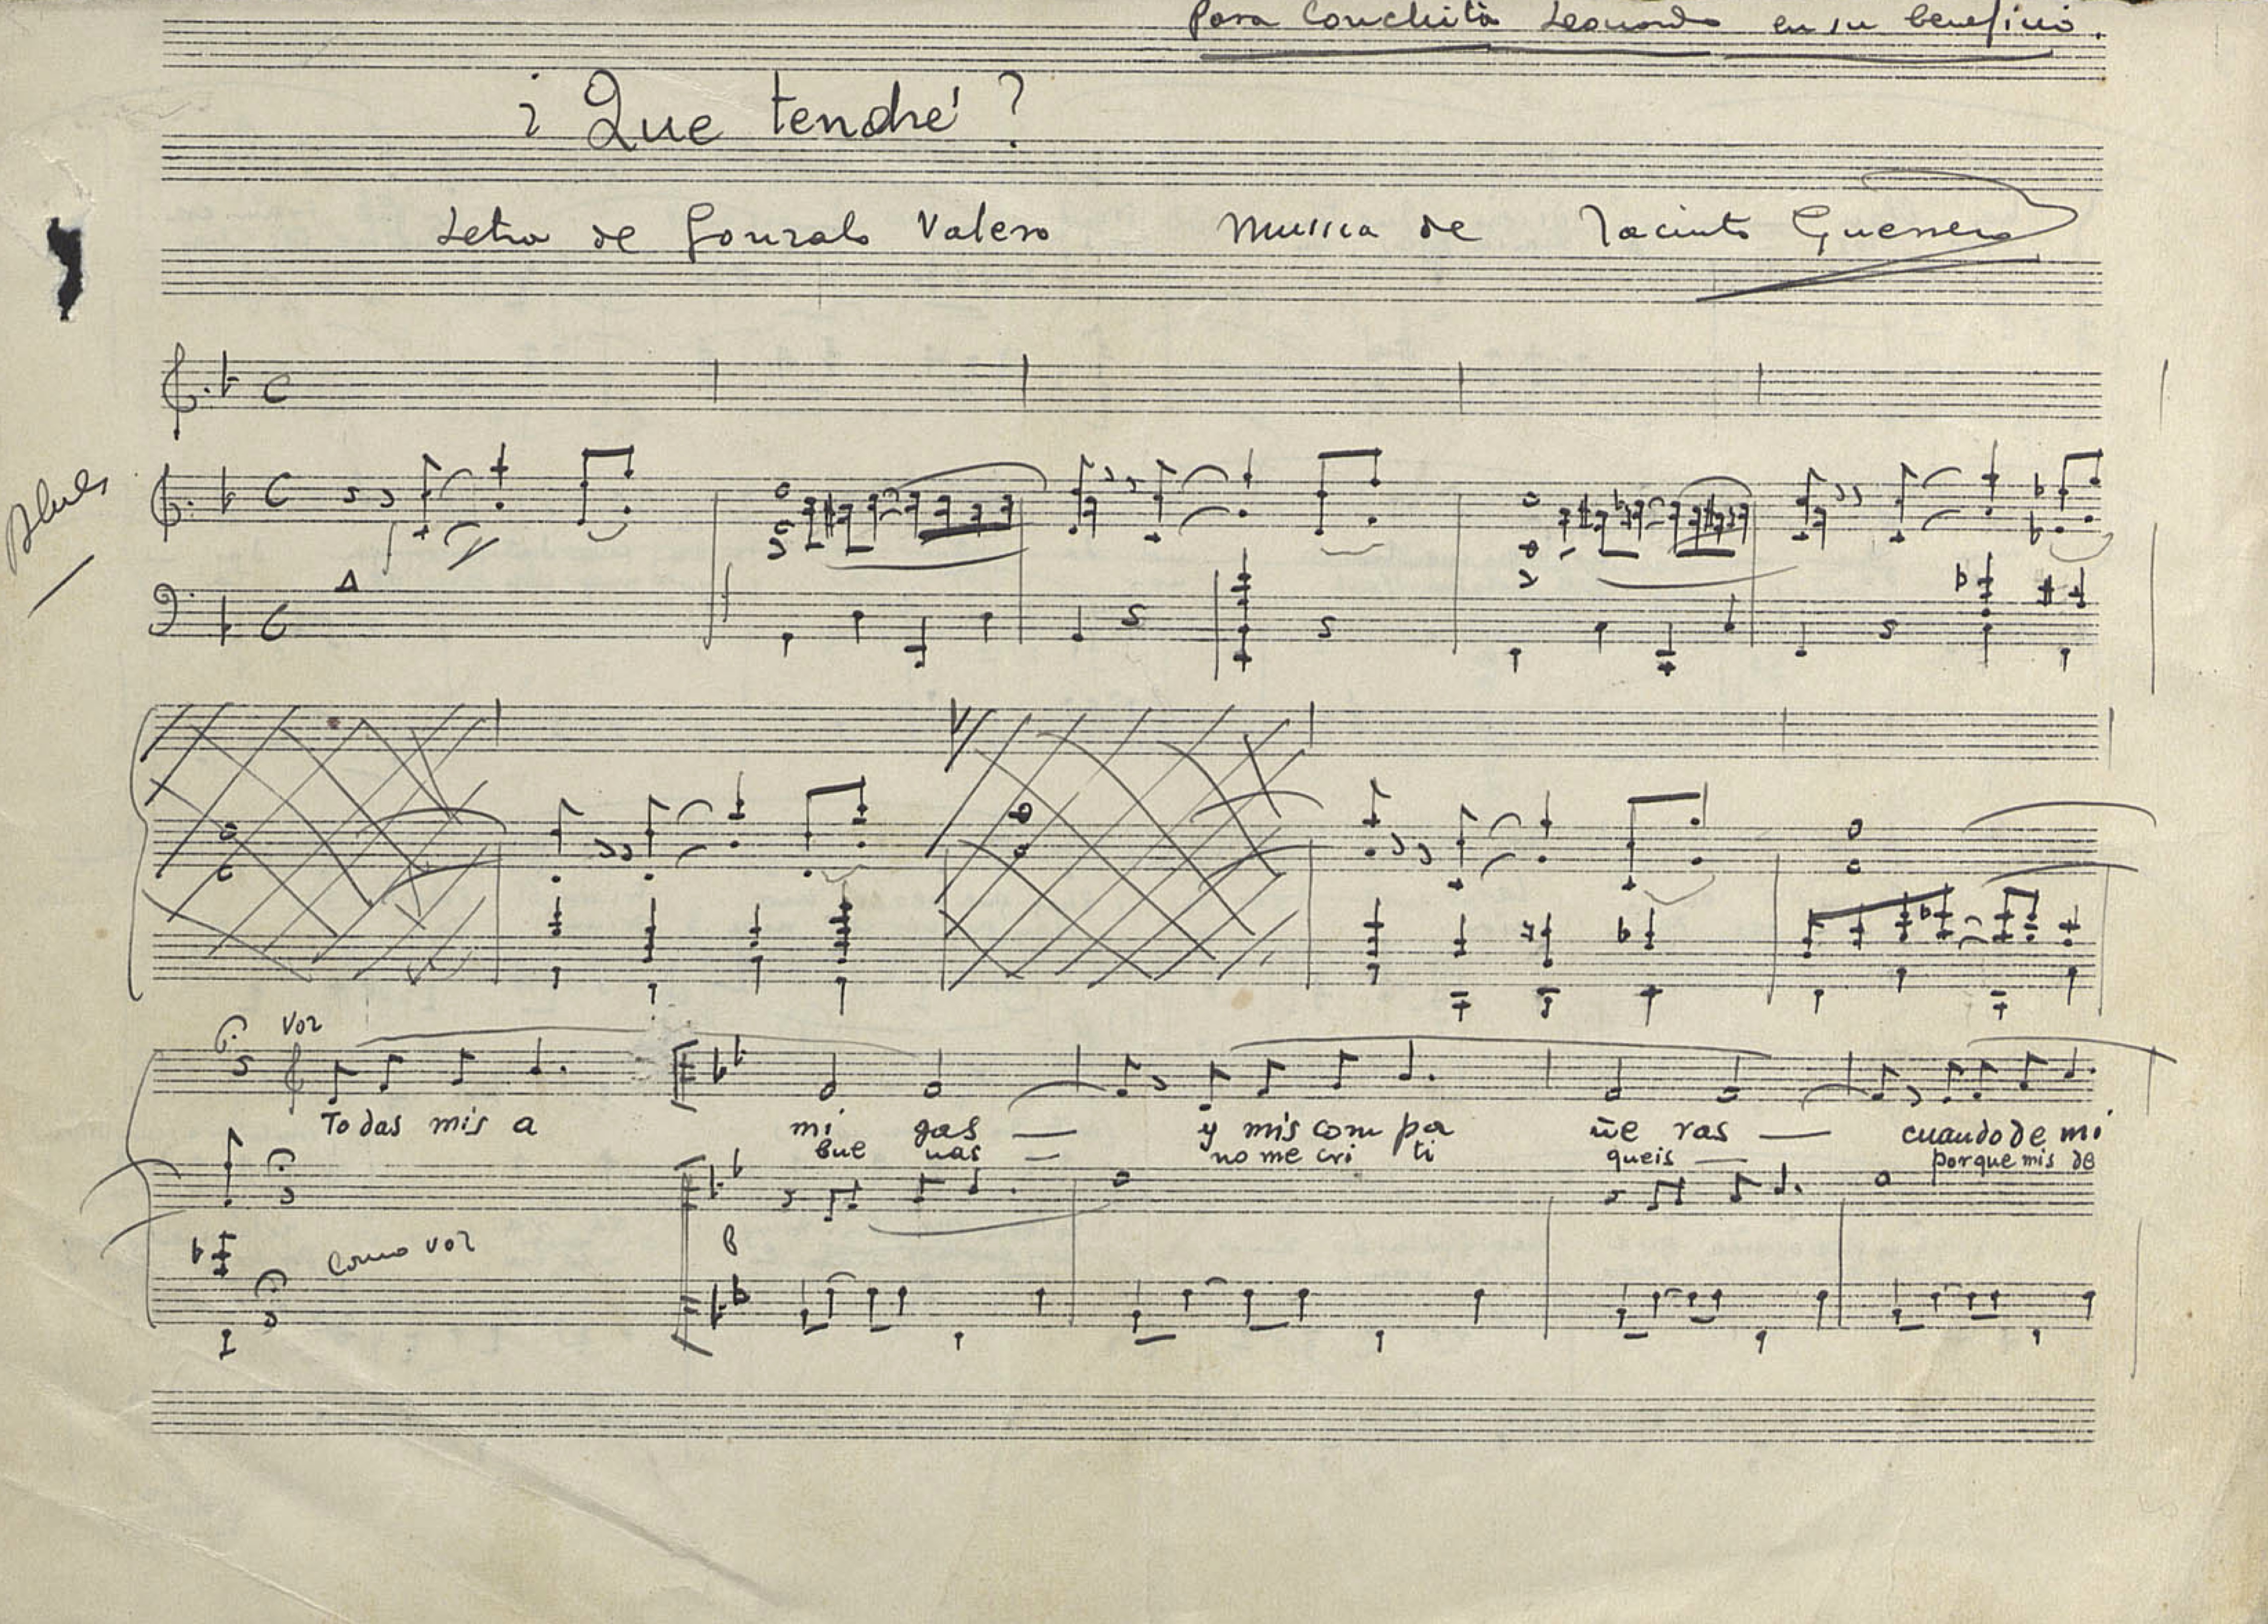 Para Conchita Leonardo en su beneficio.
¿Que tendré?
Letra de Gonzalo Valero Musica de Jacinto Guerrero
Blues
Voz
To das mis a mi gas — y mis com pa ñe ras — cuando de mi
bue nas — no me cri ti queis — porque mis de
Como voz